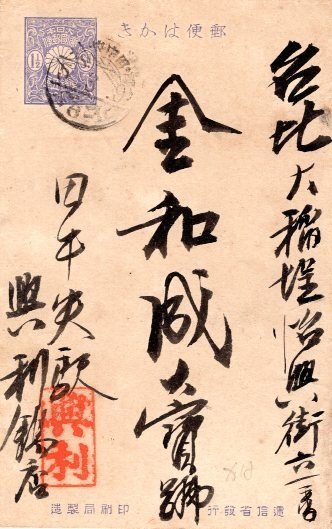 郵便はかき
1½
台北大稻埕怡興街六一番
金和成大寶號
田中央驛
興利店
興利
遞信省發行
印刷局製造